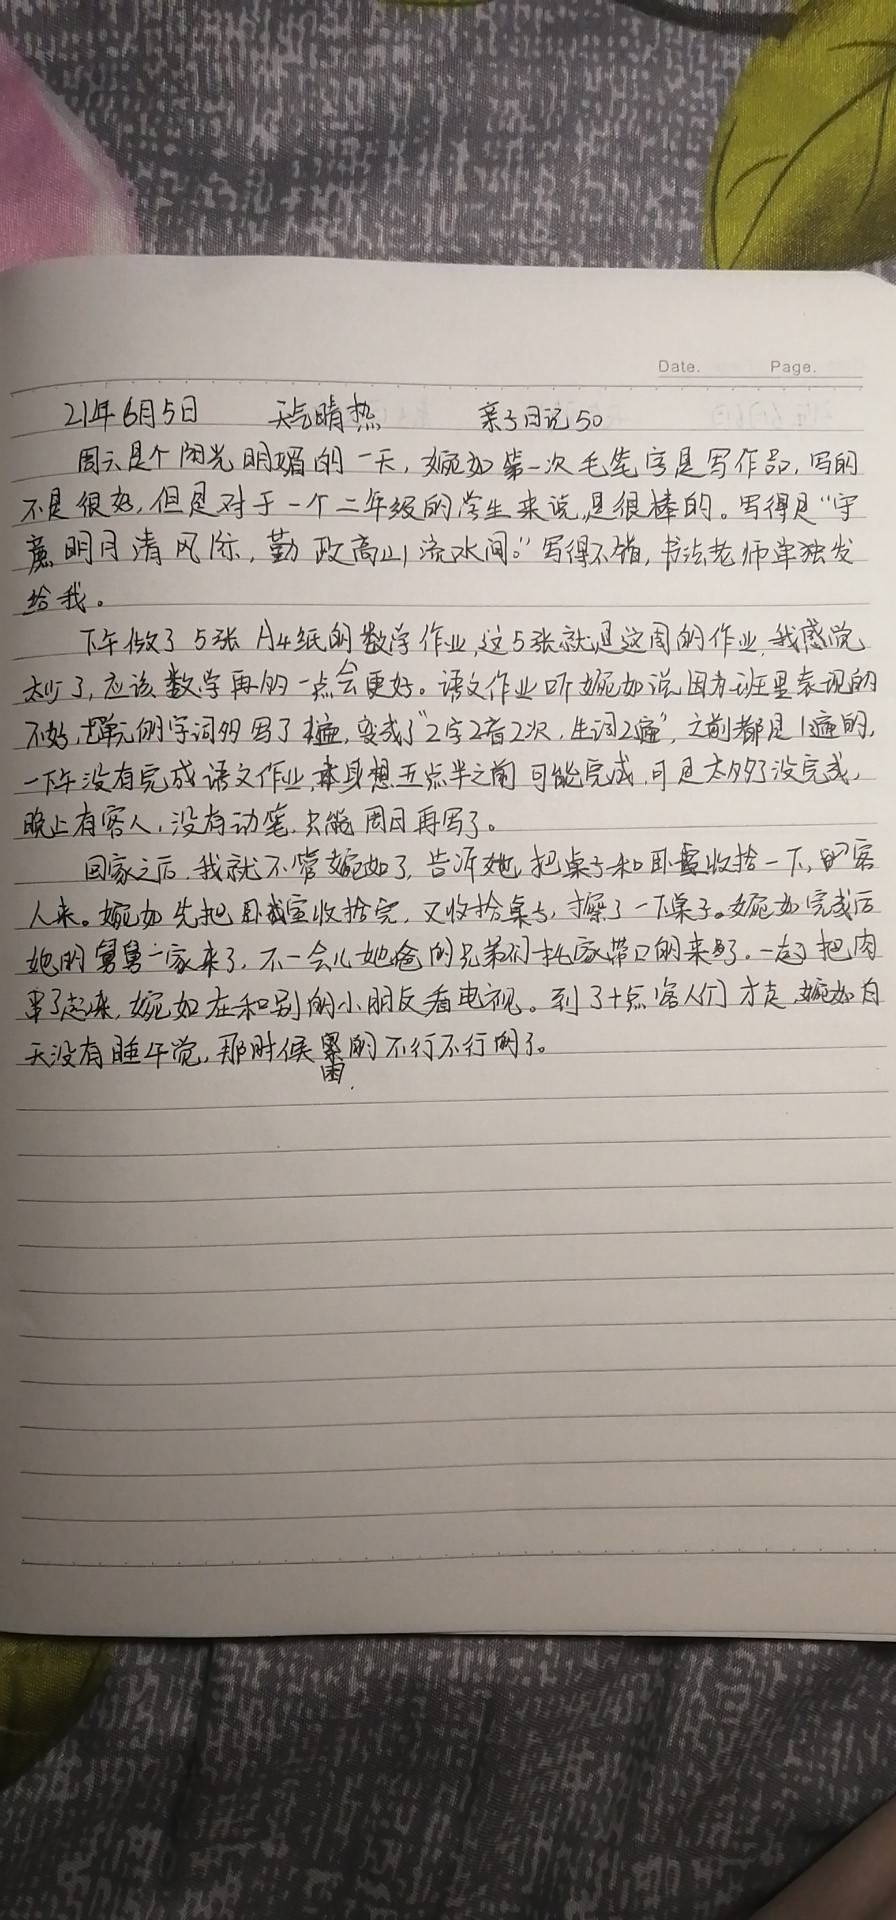 Date. Page.
21年6月5日 天气晴热 亲子日记50
周六是个阳光明媚的一天，婉如第一次毛笔字是写作品，写的
不是很好，但是对于一个二年级的学生来说，是很棒的。写得是“守
廉明月清风际，勤政高山流水间。”写得不错，书法老师单独发
给我。
下午做了5张A4纸的数学作业，这5张就是这周的作业，我感觉
太少了，应该数学再多一点会更好。语文作业听婉如说因为班里表现的
不好，把单元的字词多写了1遍，变成了“2字2音2次，生词2遍”，之前都是1遍的，
一下午没有完成语文作业，本身想五点半之前可能完成，可是太多了没完成，
晚上有客人，没有动笔，只能周日再写了。
回家之后，我就不管婉如了，告诉她，把桌子和卧室收拾一下，客
人来。婉如先把卧室收拾完，又收拾桌子，擦了一下桌子。婉如完成后
她的舅舅一家来了，不一会儿她爸的兄弟们拖家带口的来了。一起把肉
串了起来，婉如在和别的小朋友看电视。到了十点客人们才走，婉如白
天没有睡午觉，那时候困的不行不行的了。